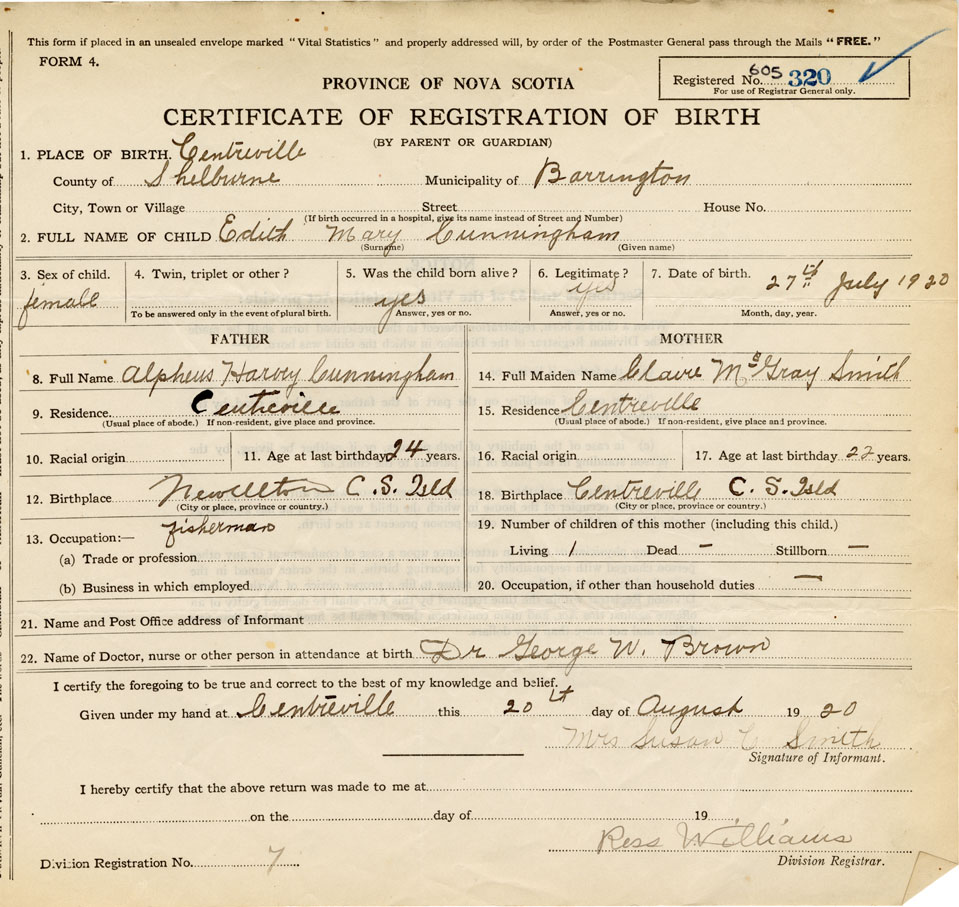 This form if placed in an unsealed envelope marked "Vital Statistics" and properly addressed will, by order of the Postmaster General pass through the Mails "FREE."
FORM 4.
Registered No. 605 320
For use of Registrar General only.
PROVINCE OF NOVA SCOTIA
CERTIFICATE OF REGISTRATION OF BIRTH
(BY PARENT OR GUARDIAN)
1. PLACE OF BIRTH. Centreville
County of Shelburne Municipality of Barrington
City, Town or Village Street House No.
(If birth occurred in a hospital, give its name instead of Street and Number)
2. FULL NAME OF CHILD Edith Mary Cunningham
(Surname) (Given name)
3. Sex of child. 4. Twin, triplet or other? 5. Was the child born alive? 6. Legitimate? 7. Date of birth.
female yes yes 27th July 1920
To be answered only in the event of plural birth. Answer, yes or no. Answer, yes or no. Month, day, year.
FATHER
8. Full Name Alpheus Harvey Cunningham
9. Residence. Centreville
(Usual place of abode.) If non-resident, give place and province.
10. Racial origin 11. Age at last birthday 24 years.
12. Birthplace Newellton C. S. Isld
(City or place, province or country.)
13. Occupation:— fisherman
(a) Trade or profession
(b) Business in which employed
MOTHER
14. Full Maiden Name McGray Smith
15. Residence Centreville
(Usual place of abode.) If non-resident, give place and province.
16. Racial origin 17. Age at last birthday 22 years.
18. Birthplace Centreville C. S. Isld
(City or place, province or country.)
19. Number of children of this mother (including this child.)
Living 1 Dead – Stillborn —
20. Occupation, if other than household duties —
21. Name and Post Office address of Informant
22. Name of Doctor, nurse or other person in attendance at birth Dr George W. Brown
I certify the foregoing to be true and correct to the best of my knowledge and belief.
Given under my hand at Centreville this 20th day of August 1920
Mrs Susan C Smith
Signature of Informant.
I hereby certify that the above return was made to me at
on the day of 19
Ross Williams
Division Registration No. 7 Division Registrar.